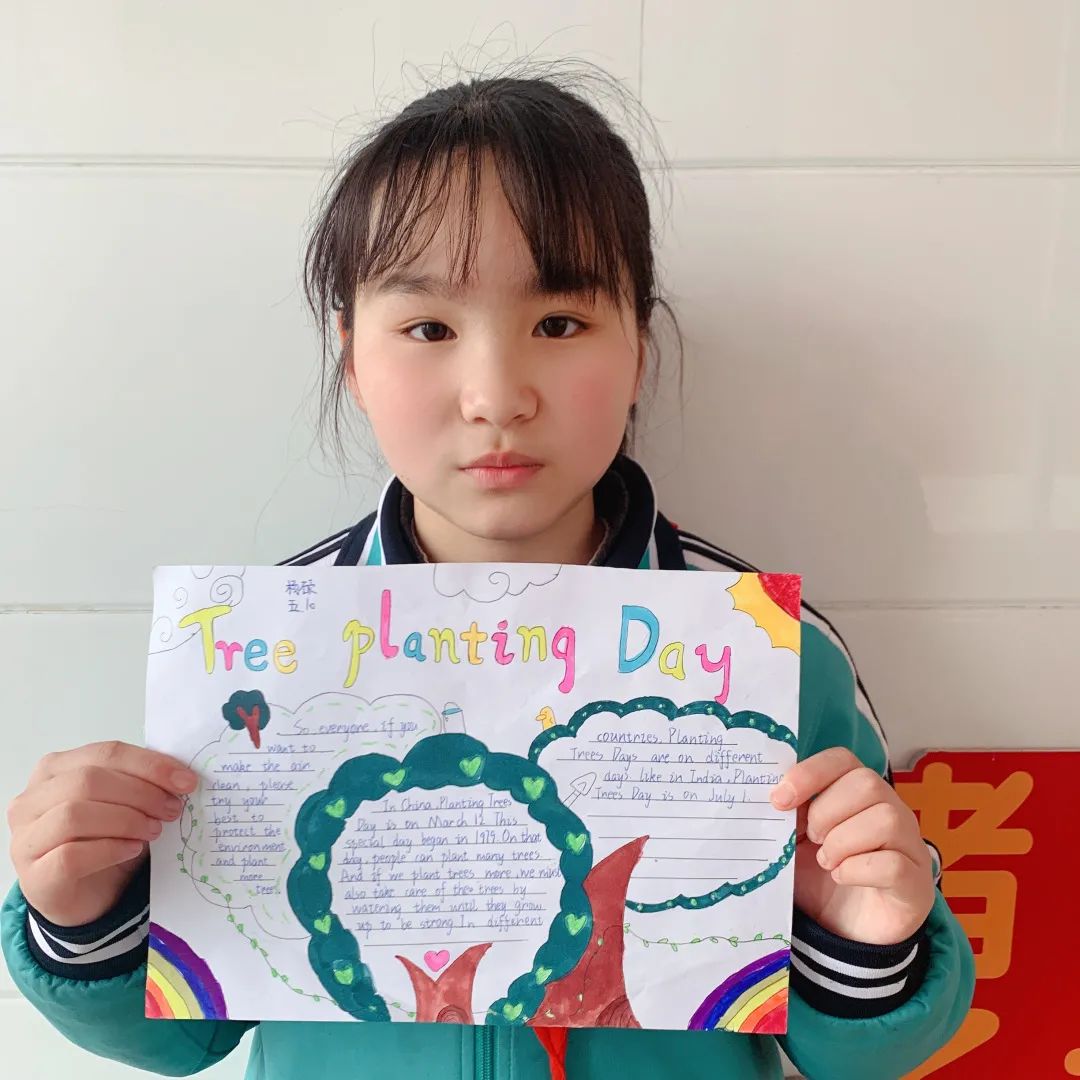 五10
Tree planting Day
So everyone, if you
want to
make the air
clean, please
try your
best to
protect the
environment
and plant
more
trees.
In China, Planting Trees
Day is on March 12. This
special day began in 1979. On that
day, people can plant many trees.
And if we plant trees more, we must
also take care of these trees by
watering them until they grow
up to be strong. In different
countries, Planting
Trees Days are on different
days. like in India, Planting
Trees Day is on July 1.